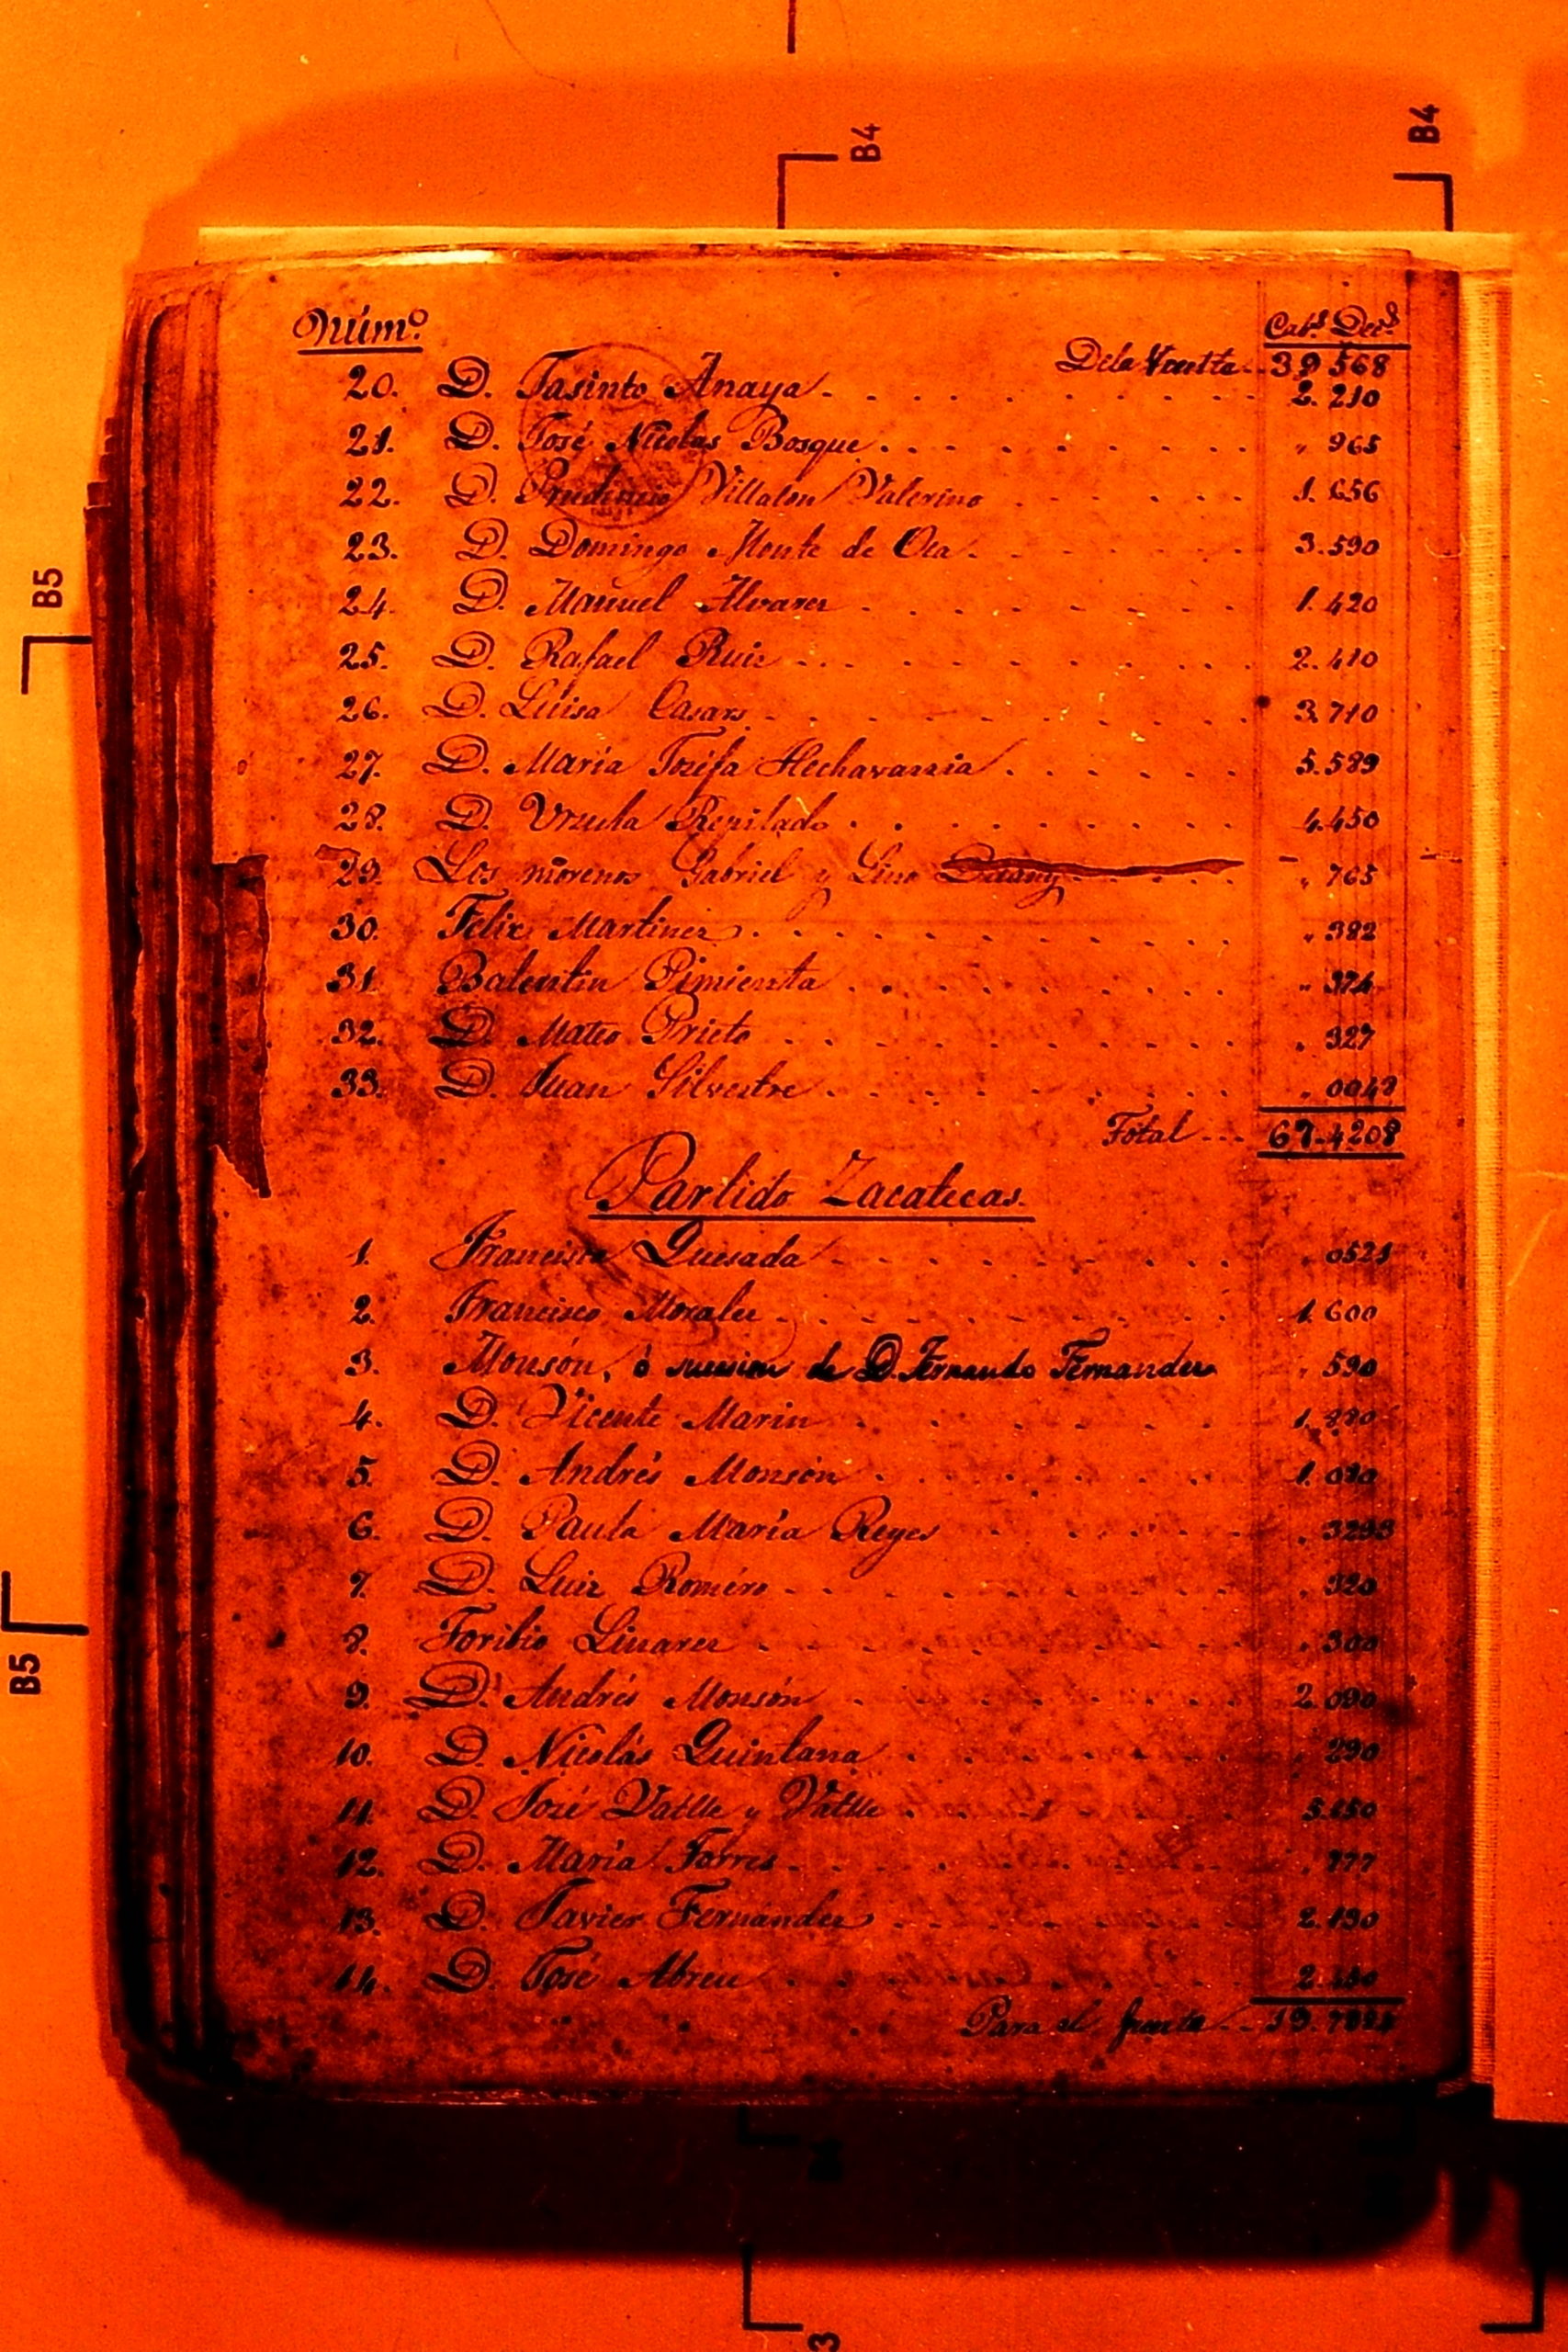 B4
B4
Núm.º Cab.s Dec.s
De la Vuelta .. 39.568
20. D. Jasinto Anaya . . . 2.210
21. D. José Nicolas Bosque . . . „ 965
22. D. Prudencio Villalon Valerino . . . 1.656
23. D. Domingo Monte de Oca . . . 3.590
24. D. Manuel Alvarez . . . 1.420
25. D. Rafael Ruiz . . . 2.410
26. D. Luisa Casars . . . 3.710
27. D. María Josefa Hechavarria . . . 5.589
28. D. Urzula Repilado . . . 4.450
29. Los morenos Gabriel y Lino . . . „ 765
30. Felix Martinez . . . „ 382
31. Balentin Pimienta . . . „ 374
32. D. Mateo Prieto . . . „ 327
33. D. Juan Silvestre . . . „ 0048
Total . . . 67.4208
Partido Zacatecas.
1. Francisco Quesada . . . „ 0521
2. Francisco Morales . . . 1.600
3. Monsón, ó sucesion de D. Fernando Fernandez „ 590
4. D. Vicente Marin . . .
5. D. Andrés Monsón . . .
6. D. Paula María Reyes . . .
7. D. Luiz Roméro . . . „ 320
8. Toribio Linares . . . „ 300
9. D. Andrés Monsón . . . 2.090
10. D. Nicolás Quintana . . . „ 290
11. D. José Vallle y Vallle . . .
12. D. María Torres . . . „ 777
13. D. Javier Fernandez . . . 2.190
14. D. José Abreu . . .
Para el frente . .
B5
B5
3